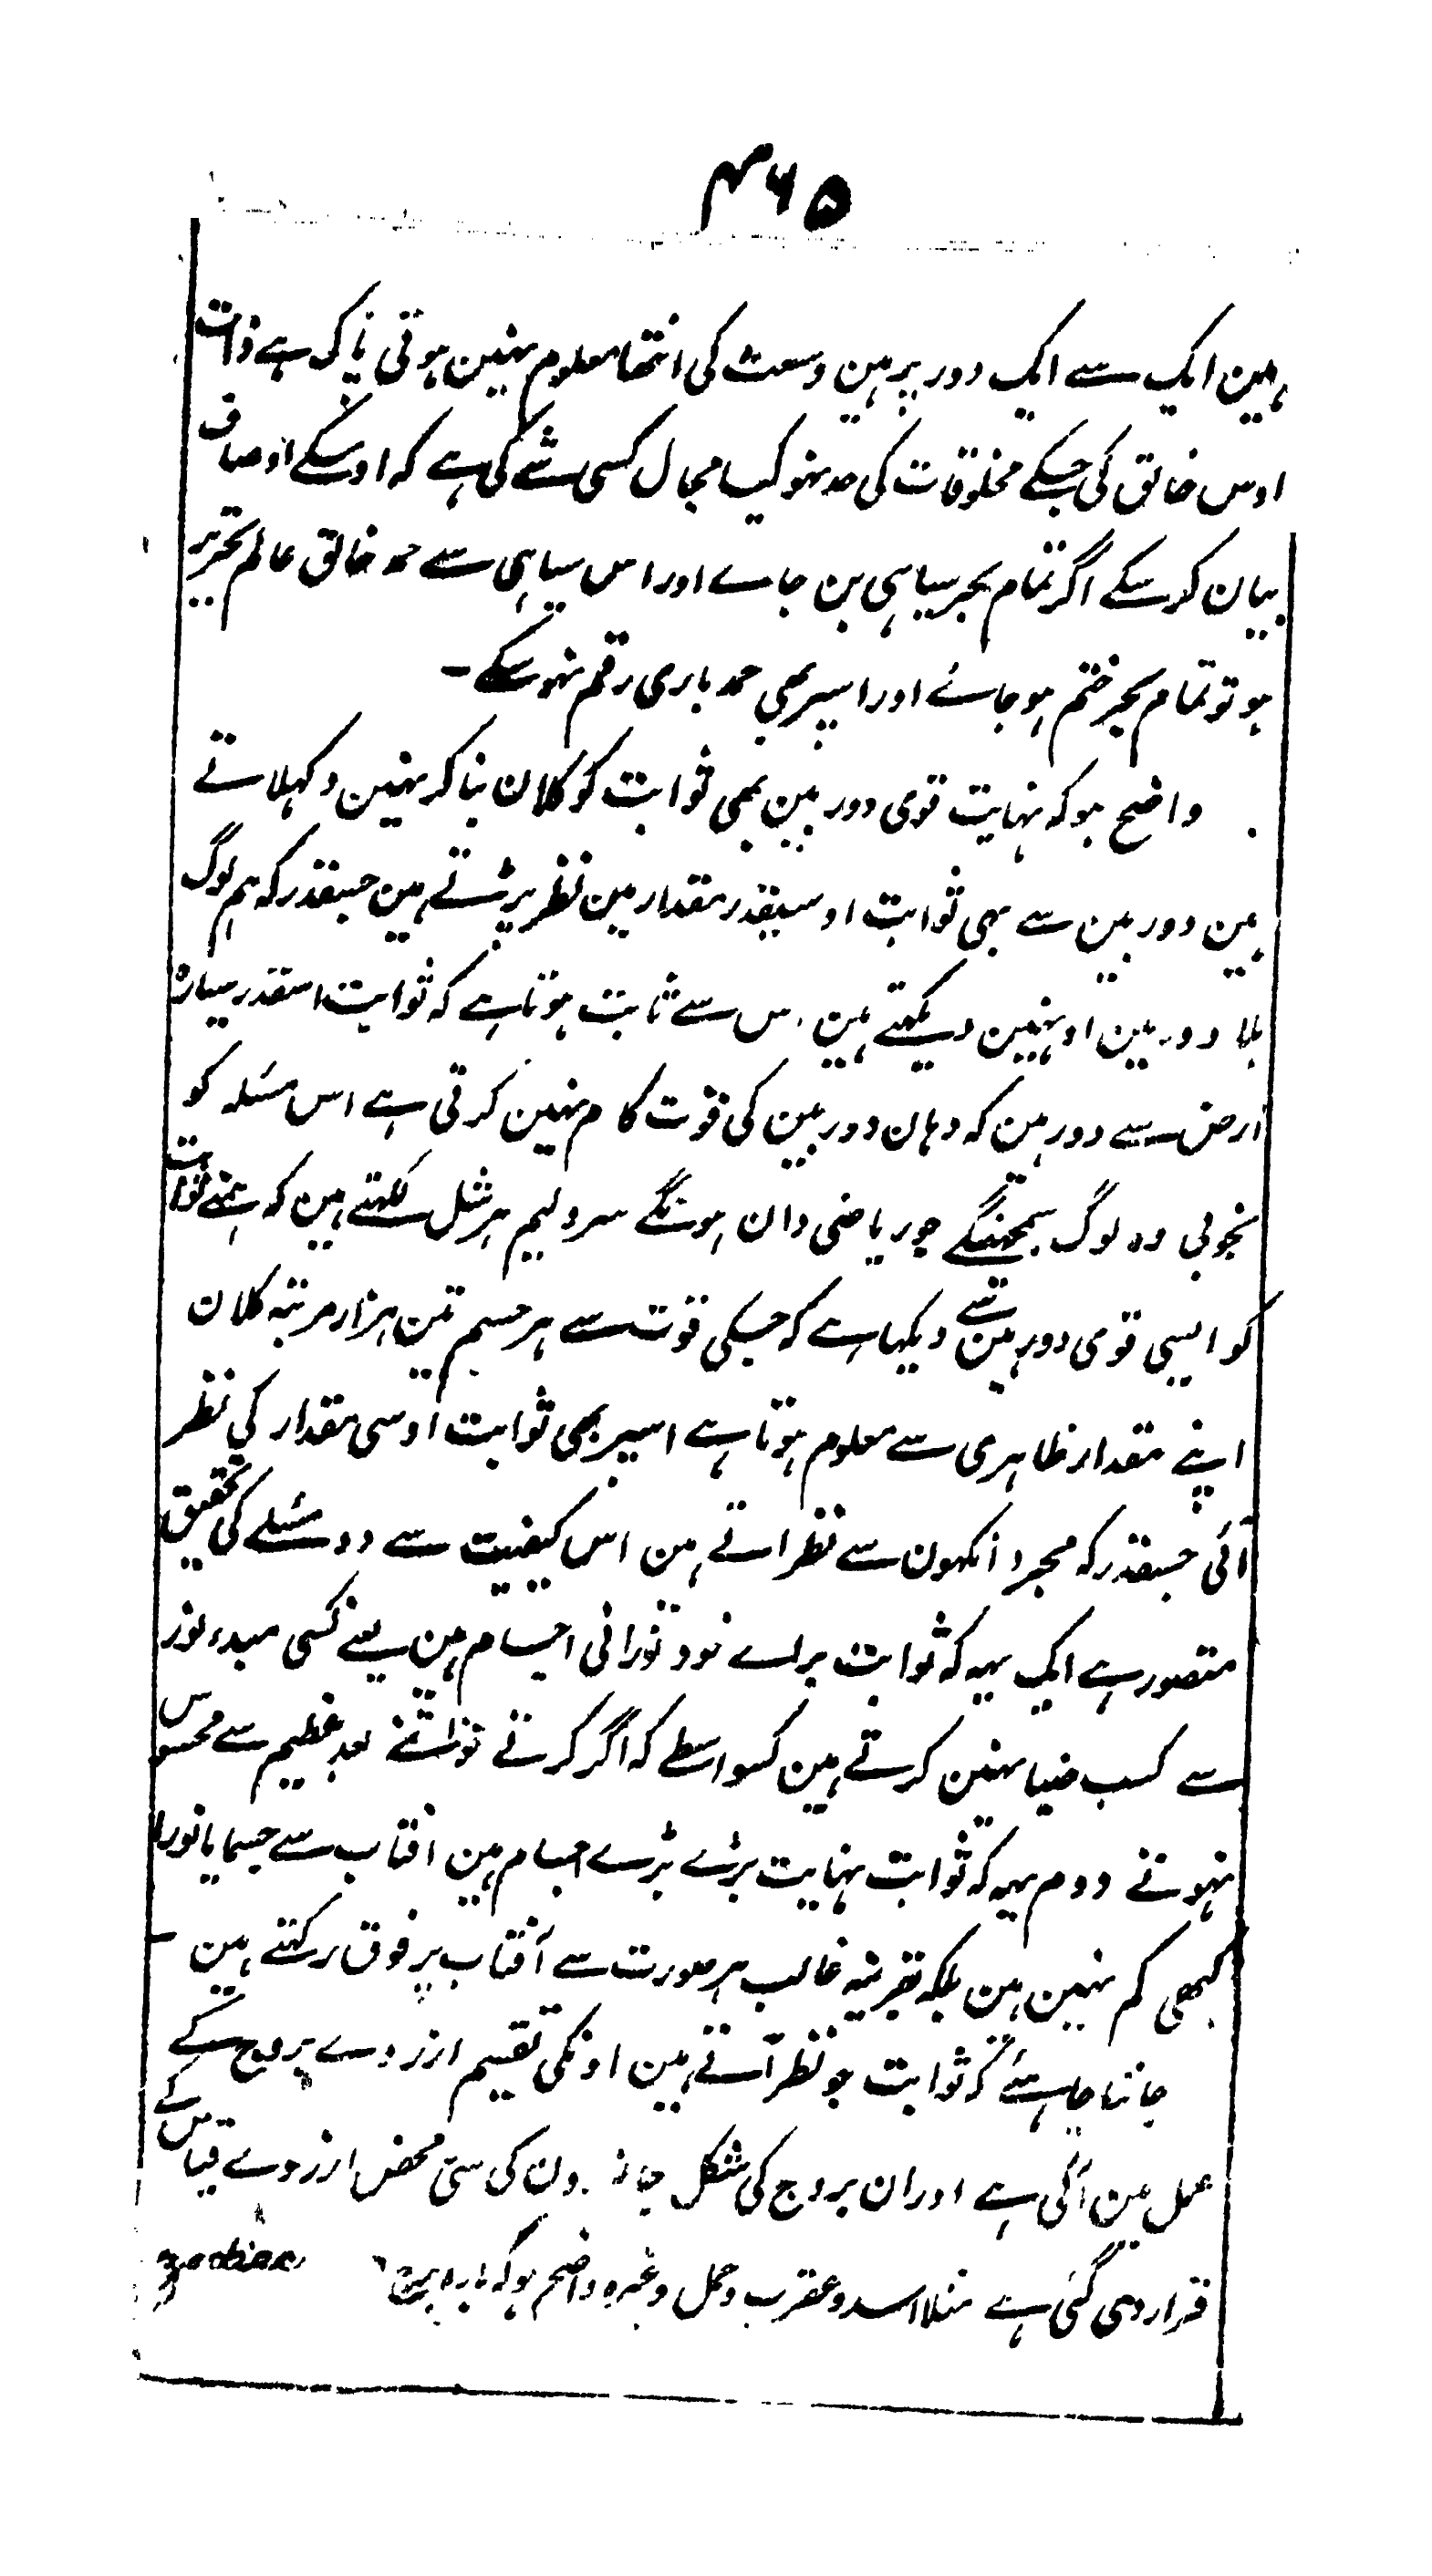 ۴۶۵
ہین ایک سے ایک دور پر ہین وسعت کی انتھا معلوم نہین ہوتی پاک ہے ذات
اوس خالق کی جسکے مخلوقات کی حد نہو کیا مجال کسی شے کی ہے کہ اوسکے اوصاف
بیان کر سکے اگر تمام بحر سیاہی بن جاے اور اس سیاہی سے حمد خالق عالم تحریر
ہو تو تمام بحر ختم ہو جائے اور اسپر بھی حمد باری رقم نہو سکے -
واضح ہو کہ نہایت قوی دوربین بھی ثوابت کو کلان بنا کر نہین دکہلاتے
یعنے دوربین سے بھی ثوابت اوسیقدر مقدار مین نظر پڑتے ہین جسقدر کہ ہم لوگ
بلا دوربین اونہین دیکہتے ہین اس سے ثابت ہوتا ہے کہ ثوابت اسقدر سیارہ
ارض سے دور ہین کہ وہان دوربین کی قوت کام نہین کرتی ہے اس مسئلہ کو
بخوبی وہ لوگ سمجھینگے جو ریاضی دان ہونگے سرولیم ہرشل لکہتے ہین کہ ہمنے ثوابت
کو ایسی قوی دوربین سے دیکہا ہے کہ جسکی قوت سے ہر جسم تین ہزار مرتبہ کلان
اپنے مقدار ظاہری سے معلوم ہوتا ہے اسپر بھی ثوابت اوسی مقدار کی نظر
آئی جسقدر کہ مجرد انکہون سے نظر اتے ہین اس کیفیت سے دو مسئلے کی تحقیق
متصور ہے ایک یہہ کہ ثوابت براے خود نورانی اجسام ہین یعنے کسی مبدء نور
سے کسب ضیا نہین کرتے ہین کسواسطے کہ اگر کرتے تو اتنے بعد عظیم سے محسوس
نہوتے دوم یہہ کہ ثوابت نہایت بڑے بڑے اجسام ہین افتاب سے جسما یا نورا
کبھی کم نہین ہین بلکہ بقرینہ غالب ہر صورت سے آفتاب پر فوق رکہتے ہین -
جاننا چاہئے کہ ثوابت جو نظر آتے ہین اونکی تقسیم ازروے بروج کے
عمل مین آئی ہے اور ان بروج کی شکل کی سی محض ازروے قیاس کے
قرار دی گئی ہے مثلا اسد و عقرب و حمل وغیرہ واضح ہو کہ بارہ برج zodiac